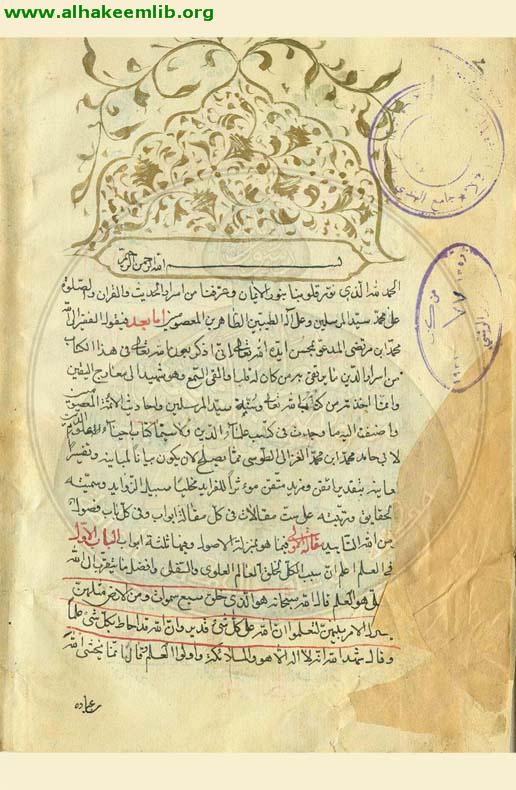 www.alhakeemlib.org
بسم الله الرحمن الرحيم
الحمد لله الذي نور قلوبنا بنور الايمان وعرفنا من اسرار الحديث والقران والصلوة
على محمد سيد المرسلين وعلى آله الطيبين الطاهرين المعصومين اما بعد فيقول الفقير الى الله
محمد بن مرتضى المدعو بمحسن ايده الله تعالى اني اذكر بعون الله تعالى في هذا الكتاب
من اسرار الدين ما ينتفع به من كان له قلب او القى السمع وهو شهيد الى معارج اليقين
وانما اخذته من كتاب الله تعالى وسنة سيد المرسلين واحاديث الائمة المعصومين
واضفت اليه ما وجدت في كتب علماء الدين ولا سيما كتاب احياء علوم الدين
لابي حامد محمد بن محمد الغزالي الطوسي مما يصلح لان يكون بيانا لمباينه وتفسيرا
بتقدير متقن ومزيد متقن موثرا للفرايد مخليا سبيل الزوايد وسميته
الحقايق ورتبته على ست مقالات في كل مقالة ابواب وفي كل باب فصول
من الله التاييد مقالة الاولى فيما هو بمنزلة الاصول وفيها ثلثة ابواب الباب الاول
في العلم اعلم ان سبب الكلي لخلق العالم العلوي والسفلي وافضل ما يتقرب الى الله
هو العلم قال الله سبحانه هو الذي خلق سبع سموات ومن الارض مثلهن
يتنزل الامر بينهن لتعلموا ان الله على كل شئ قدير وان الله قد احاط بكل شئ علما
وقال شهد الله انه لا اله الا هو والملائكة واولوا العلم وقال انما يخشى الله
من عباده
جامع الهندي